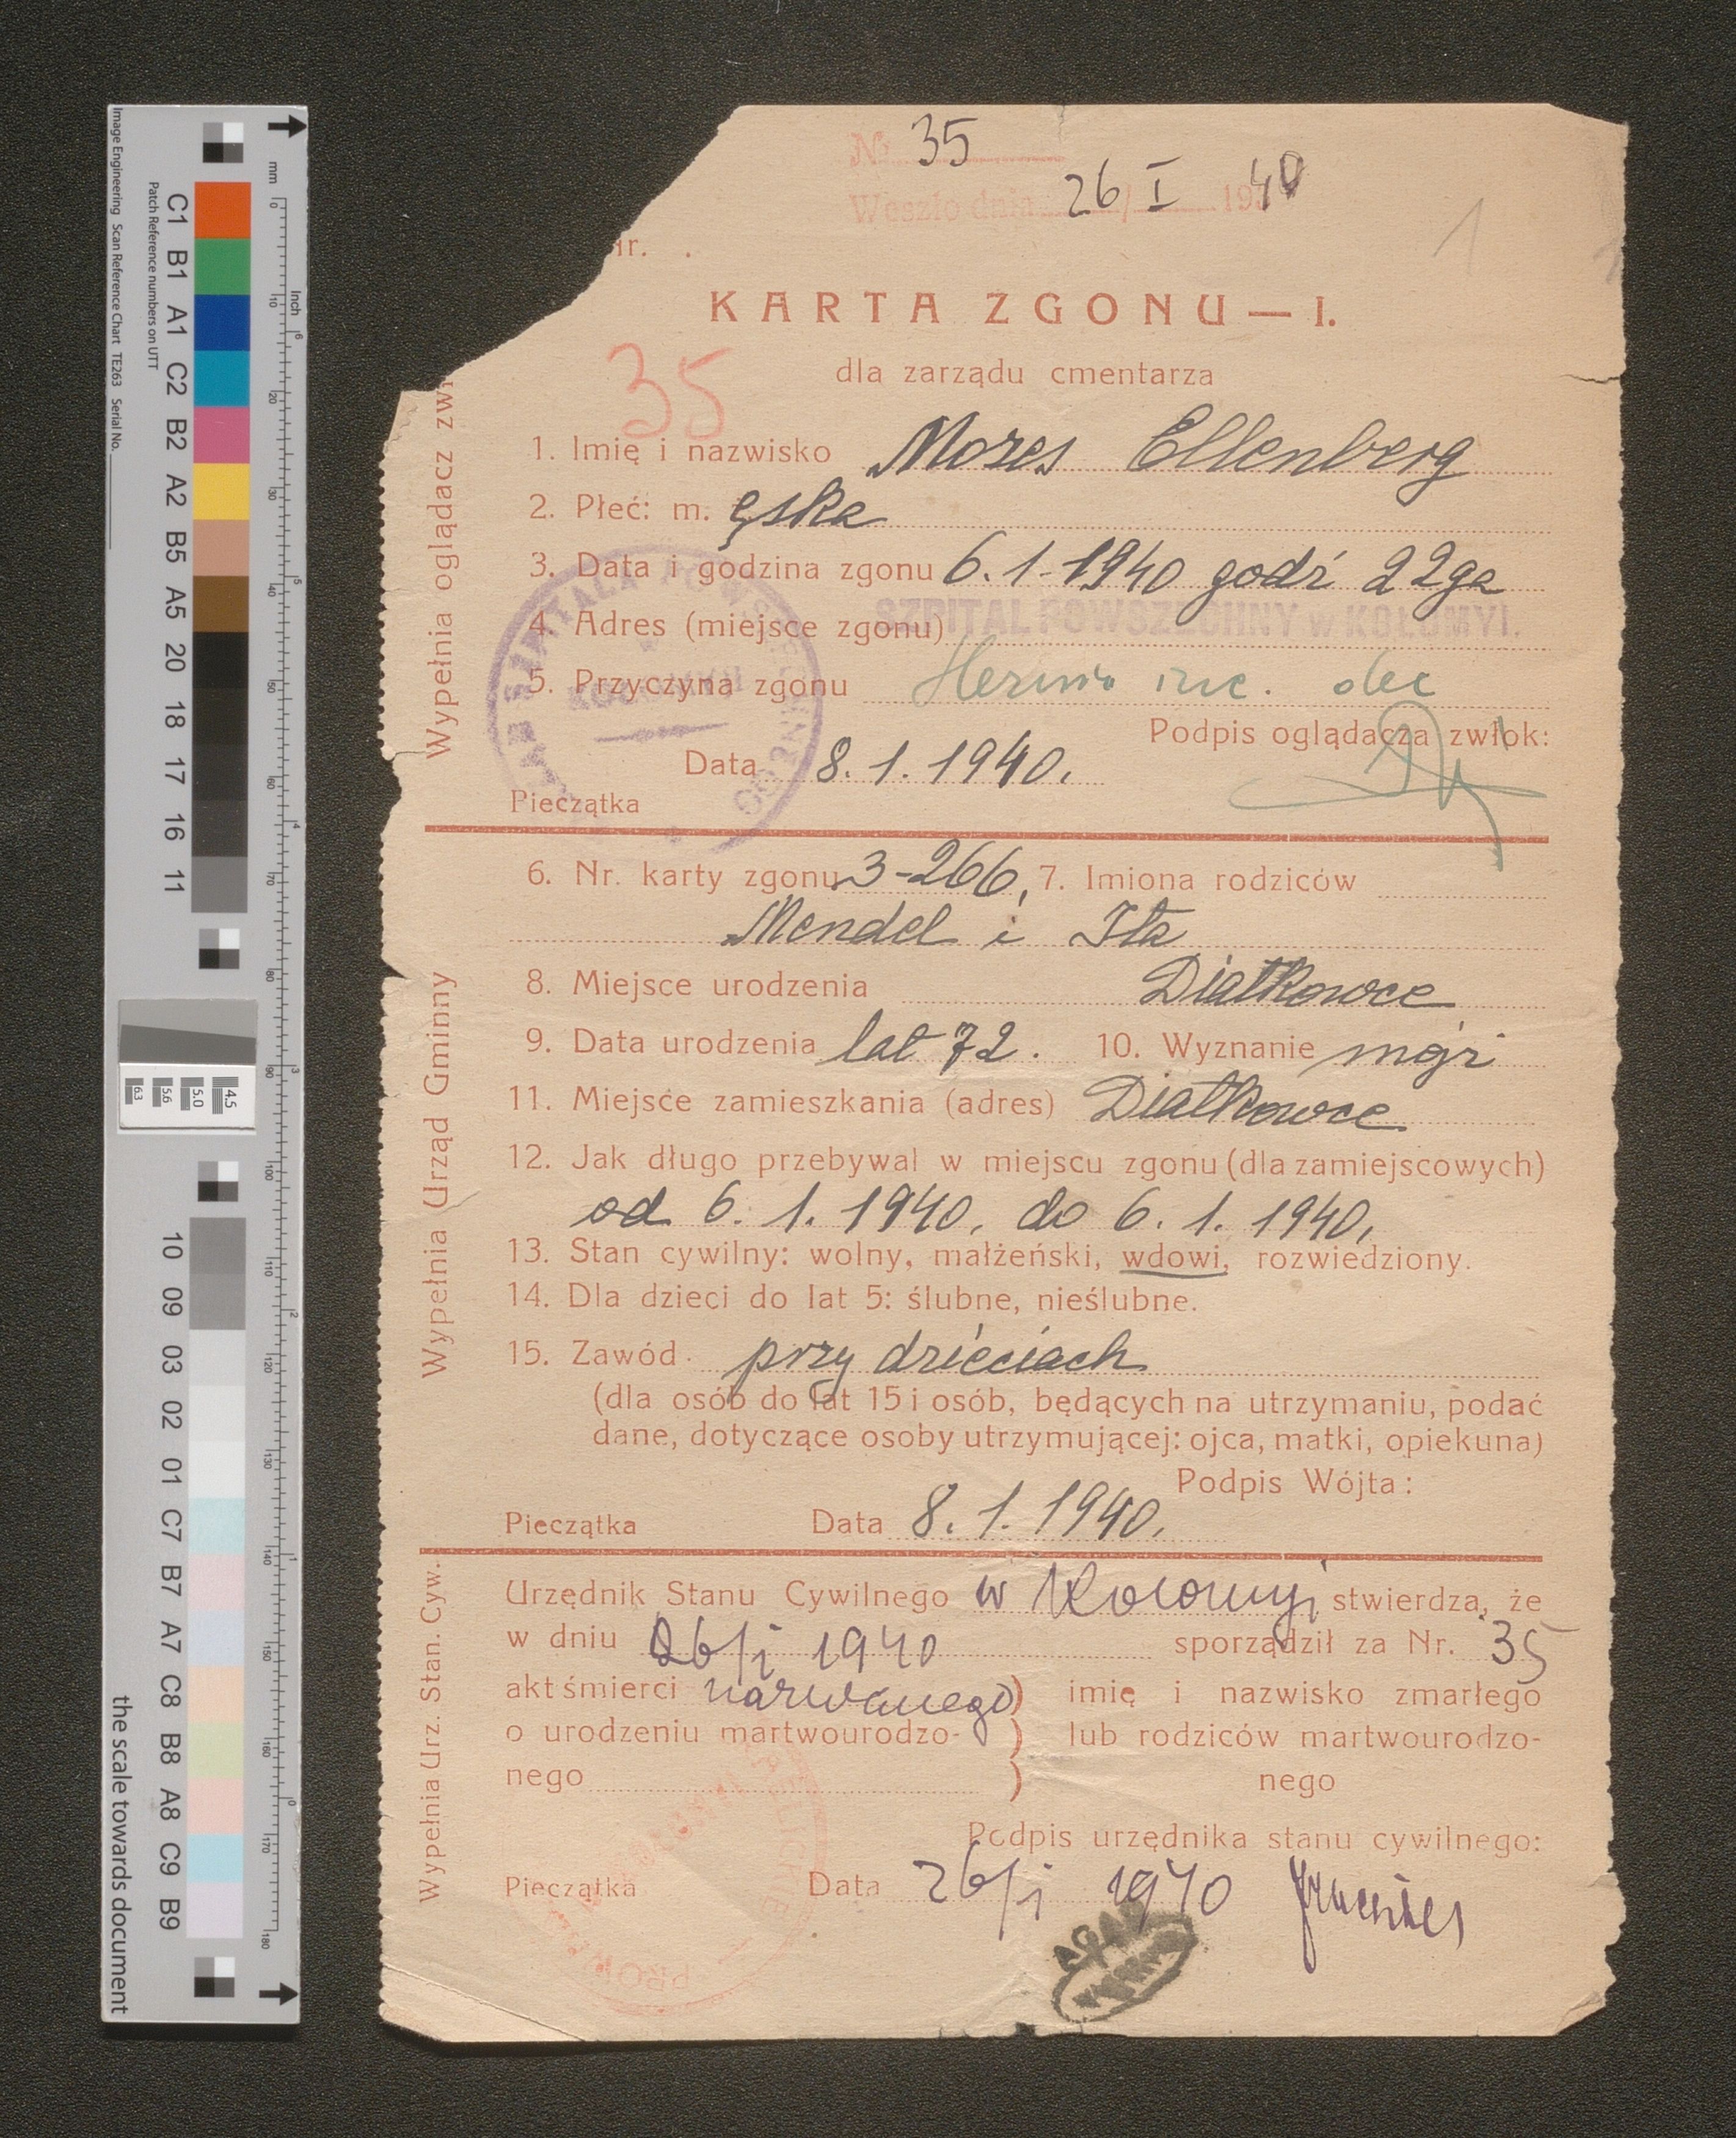 Nr. 35
Weszło dnia 26/I 1940
nr. .
1
KARTA ZGONU — I.
dla zarządu cmentarza
35
1. Imię i nazwisko Mozes Ellenberg
2. Płeć: m. ęska
3. Data i godzina zgonu 6.1-1940 godź 22ga
4. Adres (miejsce zgonu) SZPITAL POWSZECHNY w KOŁOMYI.
5. Przyczyna zgonu Hernia inc.
Podpis oglądacza zwłok:
Data 8.1.1940.
Pieczątka
Wypełnia oglądacz zwł
6. Nr. karty zgonu 3-266, 7. Imiona rodziców
Mendel i Ita
8. Miejsce urodzenia Diatkowce
9. Data urodzenia lat 72. 10. Wyznanie mojż
11. Miejsce zamieszkania (adres) Diatkowce
12. Jak długo przebywał w miejscu zgonu (dla zamiejscowych)
od 6.1.1940. do 6.1.1940,
13. Stan cywilny: wolny, małżeński, wdowi, rozwiedziony.
14. Dla dzieci do lat 5: ślubne, nieślubne.
15. Zawód przy dzieciach
(dla osób do lat 15 i osób, będących na utrzymaniu, podać
dane, dotyczące osoby utrzymującej: ojca, matki, opiekuna)
Podpis Wójta:
Pieczątka Data 8.1.1940.
Wypełnia Urząd Gminny
Urzędnik Stanu Cywilnego w Kołomyji stwierdza, że
w dniu 26/i 1940 sporządził za Nr. 35
akt śmierci nazwanego ) imię i nazwisko zmarłego
o urodzeniu martwourodzo- ) lub rodziców martwourodzo-
nego ) nego
Podpis urzędnika stanu cywilnego:
Pieczątka Data 26/i 1940
Wypełnia Urz. Stan. Cyw.
AGAD
Image Engineering Scan Reference Chart TE263 Serial No.
Patch Reference numbers on UTT
C1 B1 A1 C2 B2 A2 B5 A5 20 18 17 16 11
10 09 03 02 01 C7 B7 A7 C8 B8 A8 C9 B9
mm
0 10 20 30 40 50 60 70 80 90 100 110 120 130 140 150 160 170 180
Inch
6 5 4 3 2 1 0
63 56 5.0 4.5
the scale towards document